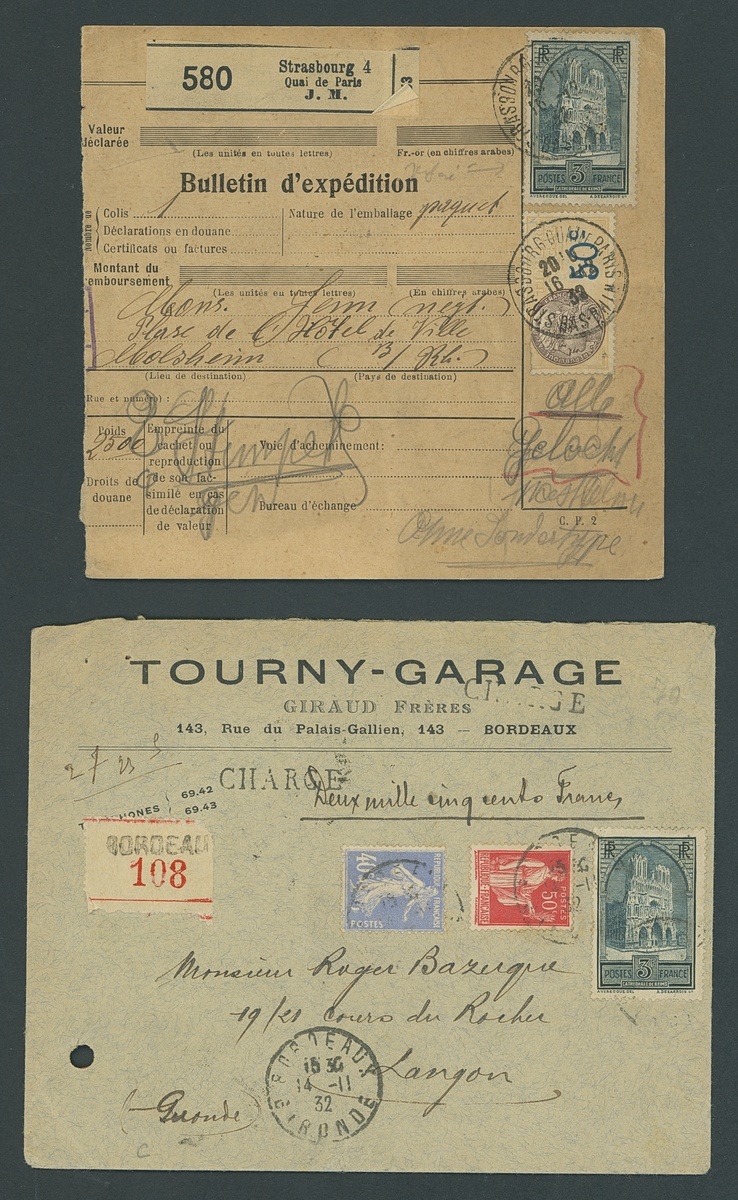 580
Strasbourg 4
Quai de Paris
J. M.
Valeur
déclarée
(Les unités en toutes lettres)
Fr.-or (en chiffres arabes)
Bulletin d'expédition
Nombre
Colis
1
Nature de l'emballage
paquet
Déclarations en douane
Certificats ou factures
Montant du
remboursement
(Les unités en toutes lettres)
(En chiffres arabes)
Mons. négt.
Place de l'Hôtel de Ville
Molsheim
(Lieu de destination)
(Pays de destination)
Rue et numéro) :
Poids
Empreinte du
cachet ou
reproduction
de son fac-
similé en cas
de déclaration
de valeur
Voie d'acheminement:
Droits de
douane
Bureau d'échange
C. P. 2
RF
POSTES 3F FRANCE
CATHÉDRALE DE REIMS
STRASBOURG QUAI DE PARIS
20
16
32
Alle
gelocht
Ohne Sondertype
TOURNY-GARAGE
CHARGE
GIRAUD FRÈRES
143, Rue du Palais-Gallien, 143 — BORDEAUX
CHARGE
Deux mille cinq cents Francs
69.42
69.43
BORDEAU
108
40c
POSTES
REPUBLIQUE FRANÇAISE
50c
POSTES
REPUBLIQUE FRANÇAISE
RF
POSTES 3F FRANCE
CATHÉDRALE DE REIMS
Monsieur Roger Bazergue
19/21 cours du Rocher
Langon
(Gironde)
BORDEAUX
15 30
14 -11
32
GIRONDE